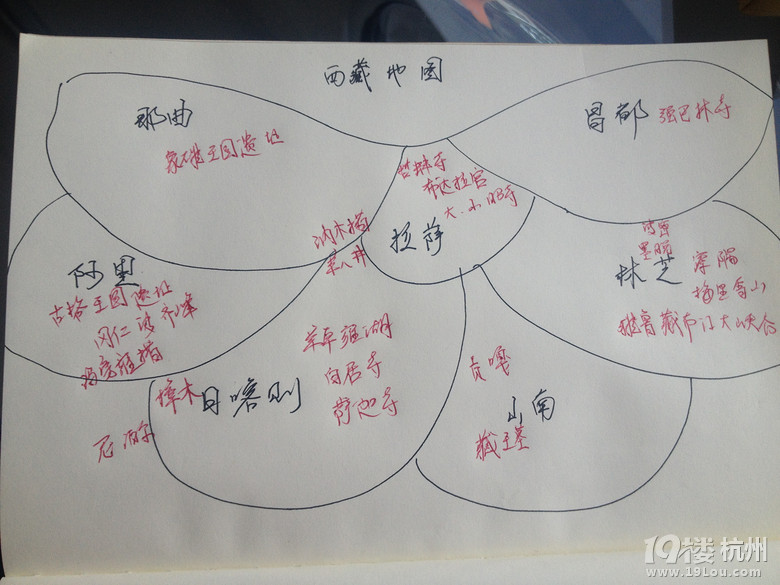 西藏地图
那曲
象雄王国遗址
昌都 强巴林寺
哲蚌寺
布达拉宫
大、小昭寺
拉萨
纳木措
羊八井
阿里
古格王国遗址
冈仁波齐峰
玛旁雍措
波密
墨脱
林芝
察隅
梅里雪山
雅鲁藏布江大峡谷
羊卓雍湖
白居寺
萨迦寺
樟木
日喀则
尼泊尔
贡嘎
山南
藏王墓
19楼杭州
www.19lou.com